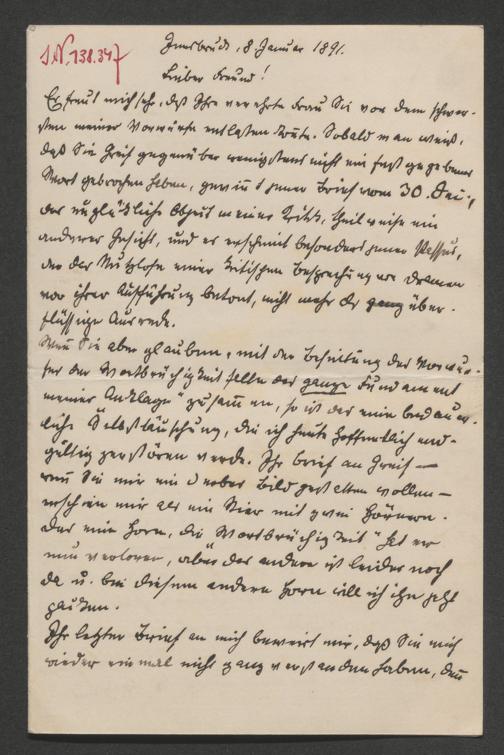 I.N. 138.347
Innsbruck, 8 Januar 1891.
Lieber Freund!
Es freut mich sehr, daß Ihre verehrte Frau Sie vor dem schwer-
sten meiner Vorwürfe entlasten konnte. Sobald man weiß,
daß Sie Greif gegenüber wenigstens nicht ein fest gegebenes
Wort gebrochen haben, gewinnt jener Brief vom 30. Dez.,
der unglückliche Object meiner Kritik, theilweise ein
anderes Gesicht, und es erscheint besonders jener Passus,
der das Nutzlose einer kritischen Besprechung von Dramen
vor ihrer Aufführung betont, nicht mehr als ganz über-
flüssige Ausrede.
Wenn Sie aber glauben, mit der Beseitigung des Vorwur-
fes der Wortbrüchigkeit falle das ganze Fundament
meiner "Anklage" zusammen, so ist das eine bedauer-
liche Selbsttäuschung, die ich heute hoffentlich end-
gültig zerstören werde. Ihr Brief an Greif —
wenn Sie mir ein derbes Bild gestatten wollen —
erschien mir als ein Stier mit zwei Hörnern.
Das eine Horn, die "Wortbrüchigkeit" hat er
nun verloren, aber das andere ist leider noch
da u. bei diesem andern Horn will ich ihn jetzt
packen.
Ihr letzter Brief an mich beweist mir, daß Sie mich
wieder einmal nicht ganz verstanden haben, denn